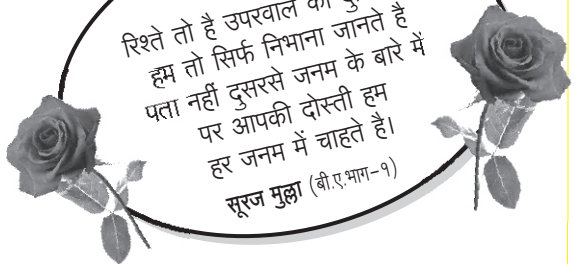 रिश्ते तो है उपरवाले की
हम तो सिर्फ निभाना जानते है
पता नहीं दुसरसे जनम के बारे में
पर आपकी दोस्ती हम
हर जनम में चाहते है।
सूरज मुल्ला (बी.ए.भाग-१)